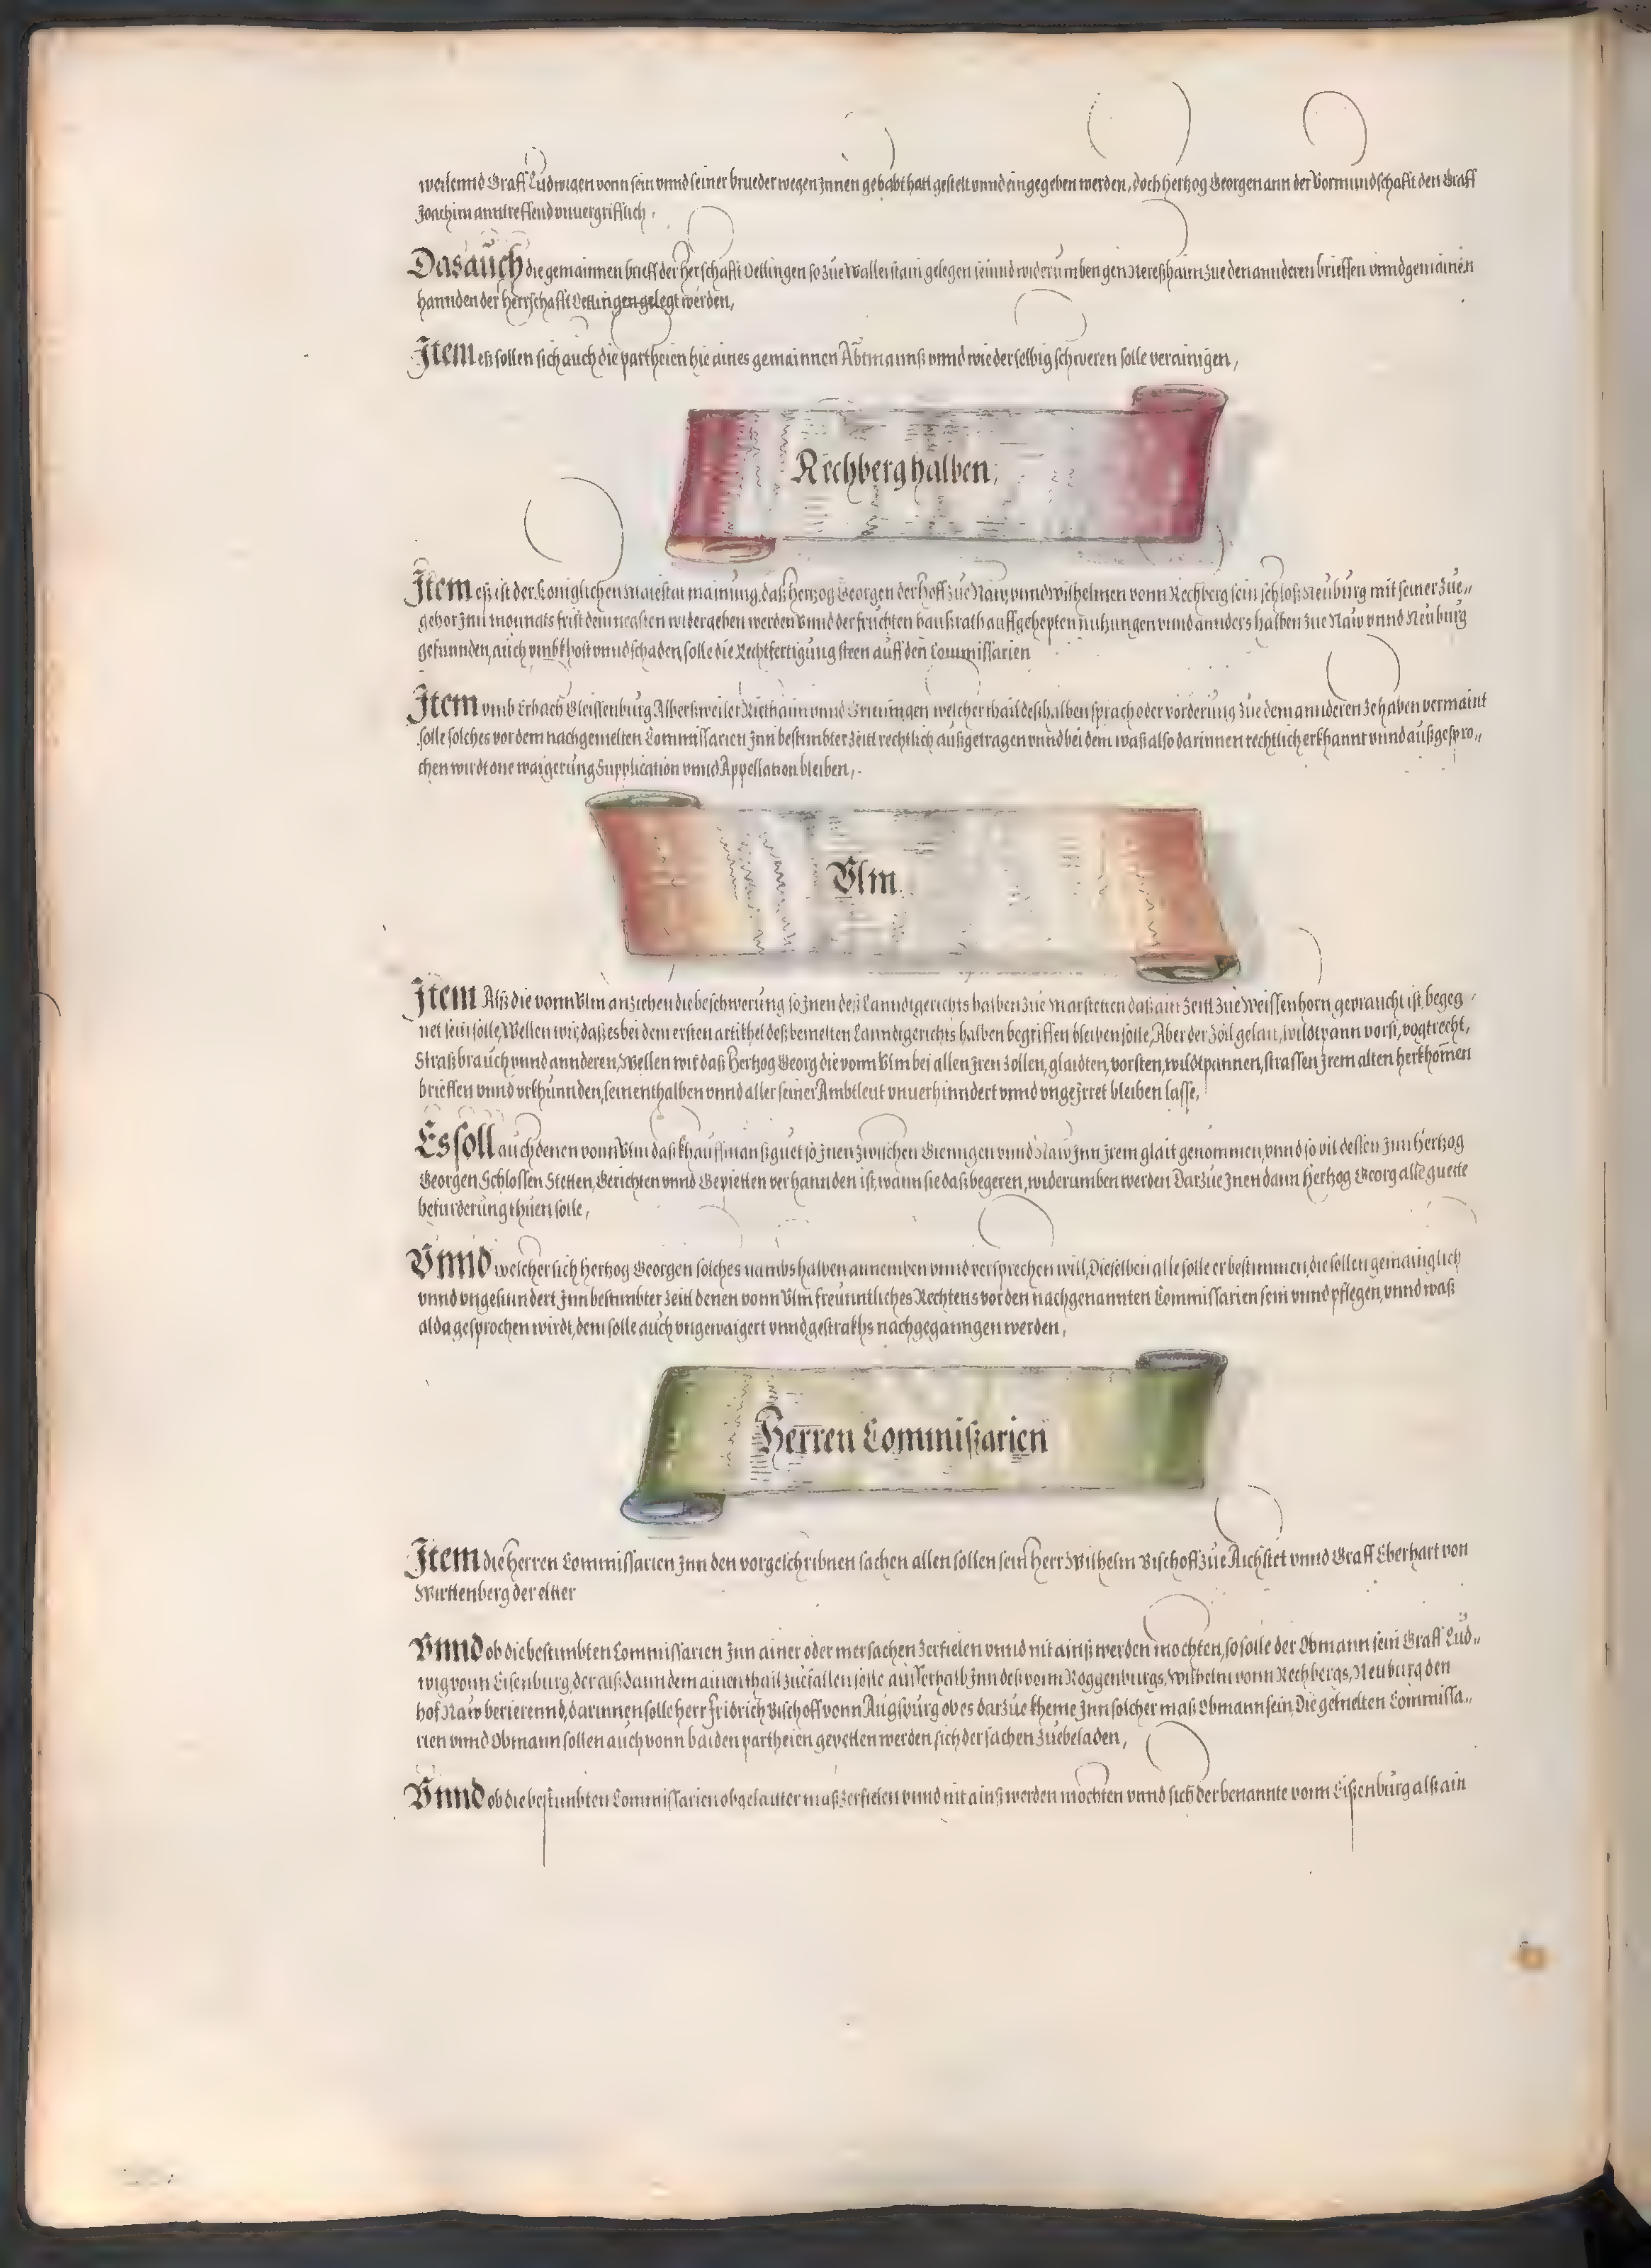 weilennd Graff Ludwigen vonn sein vnnd seiner brueder wegen Jnnen gehabt hatt gestelt vnnd eingegeben werden, doch Hertzog Georgen ann der Vormundschafft den Graff
Joachim anntreffend vnuergrifflich.
Das auch die gemainnen brieff der Herschafft Oettingen so zue Wallerstain gelegen seinnd widerumben gen Nereßhaim zue den annderen brieffen vnnd gemainen
hannden der Herrschafft Oettingen gelegt werden,
Item eß sollen sich auch die partheien hie aines gemainnen Abtmannß vnnd wie derselbig schweren solle verainigen,
Rechberg halben,
Item eß ist der Koniglichen Maiestat mainung, daß Hertzog Georgen der Hoff zue Naw, vnnd Wilhelmen vonn Rechberg sein schloß Neuburg mit seiner zue„
gehor Jnn monnats frist dem negsten widergeben werden Vnnd der fruchten haußrath auffgehepten nutzungen vnnd annders halben zue Naw vnnd Neuburg
gefunnden, auch vmb khost vnnd schaden, solle die Rechtfertigung steen auff den Commissarien
Item vmb Erbach Gleissenburg Alberßweiler Riethaim vnnd Grieningen welcher thail deshalben sprach oder vorderung zue dem annderen ze haben vermaint
solle solches vor dem nachgemelten Commissarien Jnn bestimbter Zeitt rechtlich außgetragen vnnd bei dem waß also darinnen rechtlich erkhannt vnnd außgespro„
chen wirdt one waigerung Supplication vnnd Appellation bleiben,.
Vlm
Item Alß die vonn Vlm anziehen die beschwerung so Jnen deß Lanndtgerichts halben zue Marstetten daß ain Zeitt zue Weissenhorn gepraucht ist, begeg
net sein solle, Wellen wir, daß es bei dem ersten artikhel deß bemelten Lanndtgerichts halben begriffen bleiben solle, Aber der Zoll gelait, wildtpann vorst, vogtrecht,
Straßbrauch vnnd annderen, Wellen wir daß Hertzog Georg die vonn Vlm bei allen Jren Zollen, glaidten, vorsten, wildtpannen, strassen Jrem alten herkhomen
brieffen vnnd vrkhunnden, seinenthalben vnnd aller seiner Ambtleut vnuerhinndert vnnd vngeJrret bleiben lasse,
Es soll auch denen vonn Vlm daß khauffmanßguet so Jnen zwischen Giengen vnnd Naw Jnn Jrem glait genommen, vnnd so vil dessen Jnn Hertzog
Georgen Schlossen Stetten, Gerichten vnnd Gepietten verhannden ist, wann sie daß begeren, widerumben werden Darzue Jnen dann Hertzog Georg alle guette
befurderung thuen solle,
Vnnd welcher sich Hertzog Georgen solches nambs halben annemben vnnd versprechen will, Dieselben alle solle er bestimmen, die sollen gemainglich
vnnd vngesunndert Jnn bestimbter Zeitt denen vonn Vlm freunntliches Rechtens vor den nachgenannten Commissarien sein vnnd pflegen, vnnd waß
alda gesprochen wirdt, dem solle auch vngewaigert vnnd gestrakhs nachgeganngen werden,
Herren Commißarien
Item die Herren Commissarien Jnn den vorgeschribnen sachen allen sollen sein Herr Wilhelm Bischoff zue Aichstet vnnd Graff Eberhart von
Wirttenberg der eltter
Vnnd ob die bestimbten Commissarien Jnn ainer oder mer sachen zerfielen vnnd nit ainß werden mochten, so solle der Obmann sein Graff Lud„
wig vonn Eisenburg, der alß dann dem ainen thail zuefallen solle ausserhalb Jnn deß vom Roggenburgs, Wilhelm vonn Rechbergs, Neuburg den
hof Naw berierennd, darinnen solle herr Fridrich Bischoff vonn Augspurg ob es darzue kheme Jnn solcher maß Obmann sein, Die gemelten Commissa„
rien vnnd Obmann sollen auch vonn baiden partheien gepetten werden sich der sachen zuebeladen,
Vnnd ob die bestimbten Commissarien obgelauter maß zerfielen vnnd nit ainß werden mochten vnnd sich der benannte vonn Eißenburg alß ain